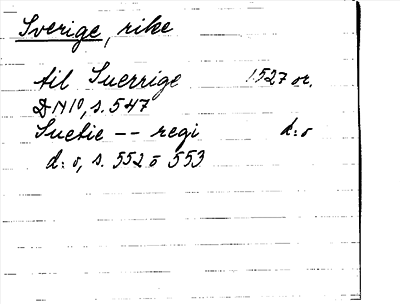 Sverige, rike
til Suerrige 1527 or.
DN10, s. 547
Suetie -- regi d:o
d:o, s. 552 o 553